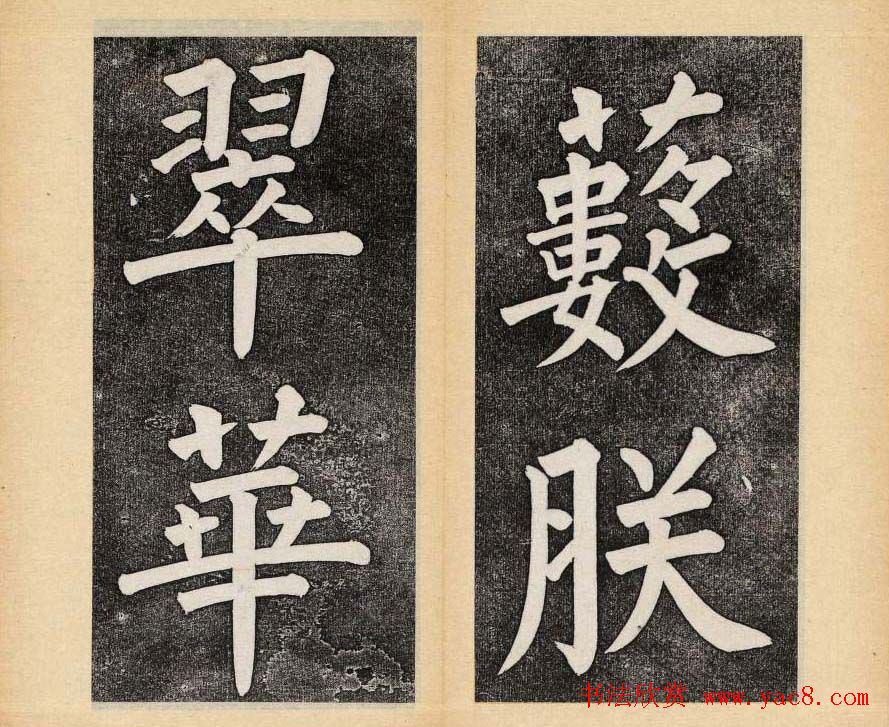 藪朕
翠華
书法欣赏 www.yac8.com